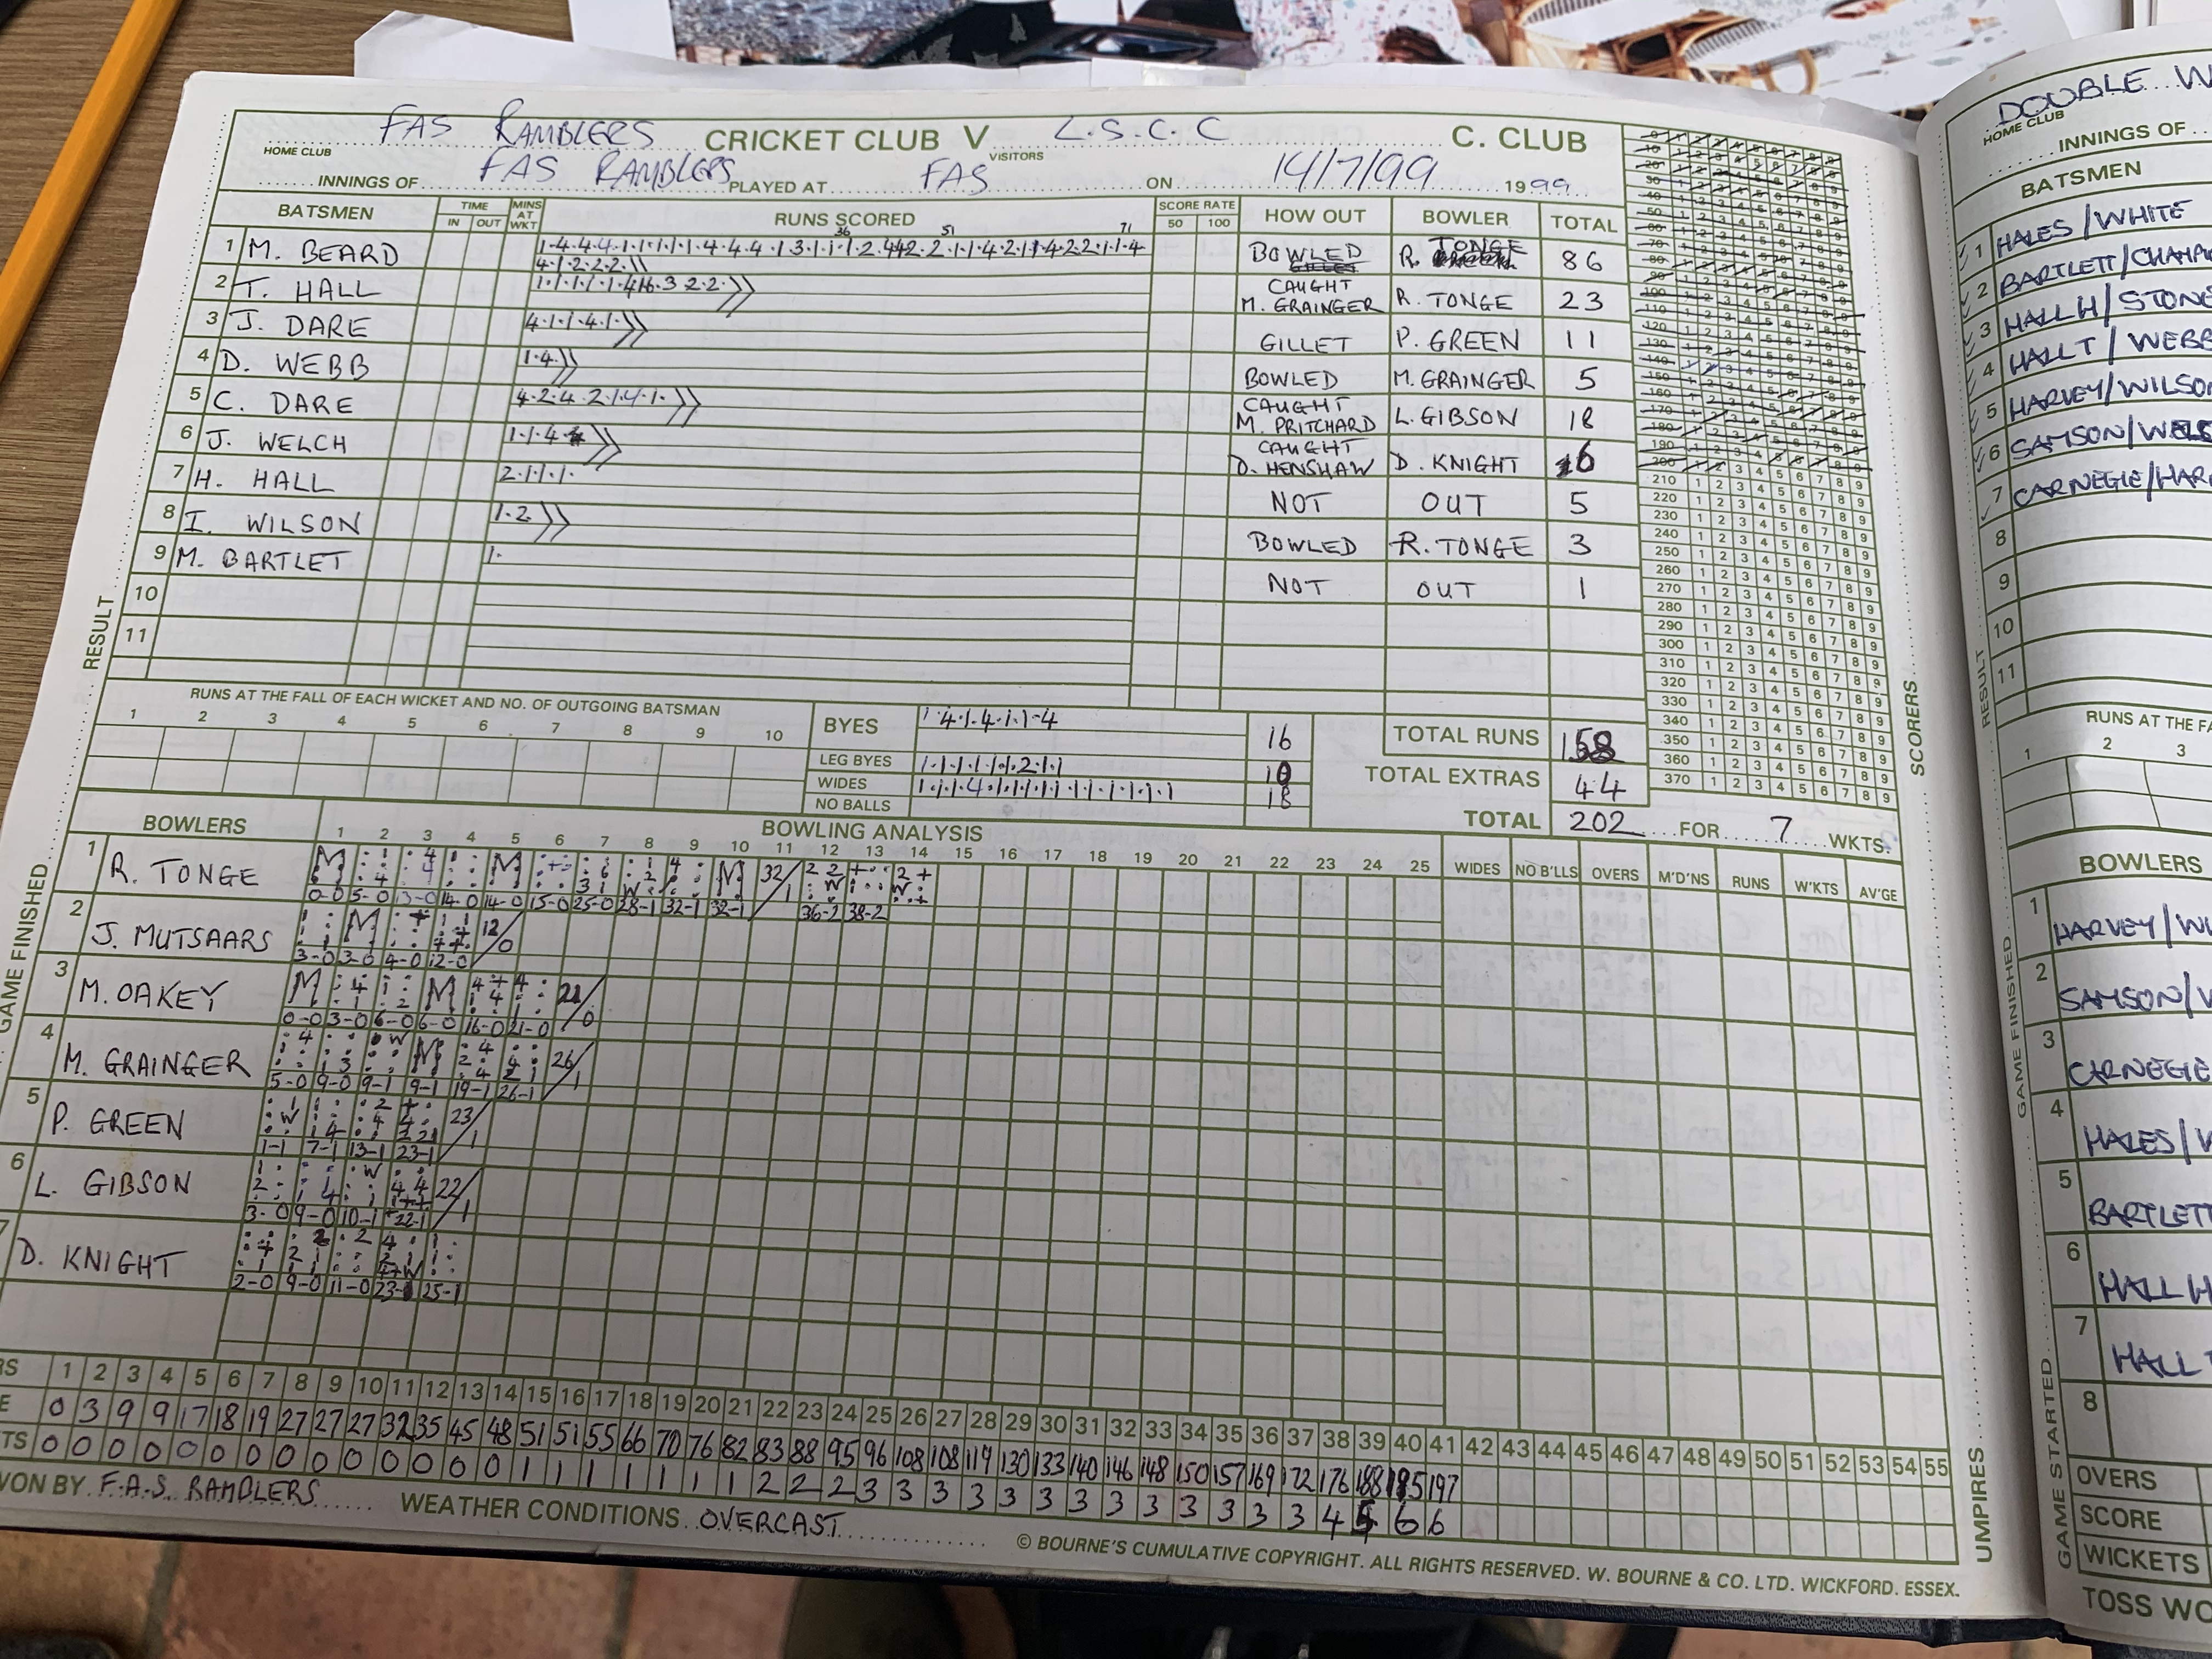 FAS RAMBLERS CRICKET CLUB V L.S.C.C C. CLUB
HOME CLUB VISITORS
INNINGS OF FAS RAMBLERS PLAYED AT FAS ON 14/7/99 1999
BATSMEN TIME IN OUT MINS AT WKT RUNS SCORED SCORE RATE 50 100 HOW OUT BOWLER TOTAL
36 51 71
1 M. BEARD BOWLED R. TONGE 86
2 T. HALL CAUGHT M. GRAINGER R. TONGE 23
3 J. DARE 4.1.1.4.1. GILLET P. GREEN 11
4 D. WEBB 1.4. BOWLED M. GRAINGER 5
5 C. DARE 4.2.4.2.1.4.1. CAUGHT M. PRITCHARD L. GIBSON 18
6 J. WELCH 1.1.4 CAUGHT D. HENSHAW D. KNIGHT 6
7 H. HALL 2.1.1.1. NOT OUT 5
8 I. WILSON 1.2 BOWLED R. TONGE 3
9 M. BARTLET 1. NOT OUT 1
10
11
RESULT
SCORERS
RUNS AT THE FALL OF EACH WICKET AND NO. OF OUTGOING BATSMAN
1 2 3 4 5 6 7 8 9 10
BYES 1.4.1.4.1.1-4 16
LEG BYES 1.1.1.1.1.1.2.1.1 10
WIDES 18
NO BALLS
TOTAL RUNS 158
TOTAL EXTRAS 44
TOTAL 202 FOR 7 WKTS.
BOWLERS BOWLING ANALYSIS
1 2 3 4 5 6 7 8 9 10 11 12 13 14 15 16 17 18 19 20 21 22 23 24 25 WIDES NO B'LLS OVERS M'D'NS RUNS W'KTS AV'GE
1 R. TONGE 32/1
0-0 5-0 13-0 14-0 14-0 15-0 25-0 28-1 32-1 32-1 36-2 38-2
2 J. MUTSAARS 12/0
3-0 3-0 4-0 12-0
3 M. OAKEY 21/0
0-0 3-0 6-0 6-0 16-0 21-0
4 M. GRAINGER 26/1
5-0 9-0 9-1 9-1 19-1 26-1
5 P. GREEN 23/1
1-1 7-1 13-1 23-1
6 L. GIBSON 22/1
3-0 9-0 10-1 22-1
7 D. KNIGHT
2-0 9-0 11-0 23-1 25-1
GAME FINISHED
UMPIRES
RS 1 2 3 4 5 6 7 8 9 10 11 12 13 14 15 16 17 18 19 20 21 22 23 24 25 26 27 28 29 30 31 32 33 34 35 36 37 38 39 40 41 42 43 44 45 46 47 48 49 50 51 52 53 54 55
E 0 3 9 9 17 18 19 27 27 27 32 35 45 48 51 51 55 66 70 76 82 83 88 95 96 108 108 119 130 133 140 146 148 150 157 169 172 176 188 195 197
TS 0 0 0 0 0 0 0 0 0 0 0 0 0 0 1 1 1 1 1 1 1 2 2 2 3 3 3 3 3 3 3 3 3 3 3 3 3 4 5 6 6
WON BY F.A.S. RAMBLERS WEATHER CONDITIONS OVERCAST
© BOURNE'S CUMULATIVE COPYRIGHT. ALL RIGHTS RESERVED. W. BOURNE & CO. LTD. WICKFORD. ESSEX.
DOUBLE W
HOME CLUB
INNINGS OF
BATSMEN
1 HALES/WHITE
2 BARTLETT/CHAMP
3 HALL H/STONE
4 HALL T/WEBB
5 HARVEY/WILSO
6 SAMSON/WELS
7 CARNEGIE/HAR
8
9
10
11
RESULT
RUNS AT THE FA
1 2 3
BOWLERS
1 HARVEY/WI
2 SAMSON/W
3 CARNEGIE
4 HALES/W
5 BARTLETT
6 HALL H
7 HALL T
8
GAME FINISHED
GAME STARTED
OVERS
SCORE
WICKETS
TOSS WO